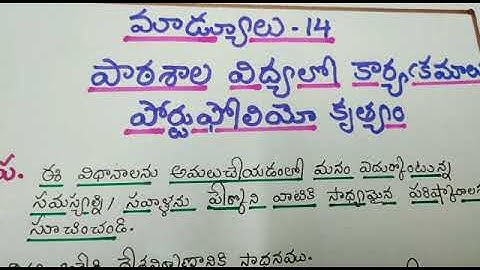 మాడ్యూలు - 14
పాఠశాల విద్యలో కార్యక్రమాలు
పోర్టుఫోలియో కృత్యం
ప. ఈ విధానాలను అమలుచేయడంలో మనం ఎదుర్కొంటున్న
సమస్యల్ని / సవాళ్లను పేర్కొని వాటికి సాధ్యమైన పరిష్కారాలను
సూచించండి.